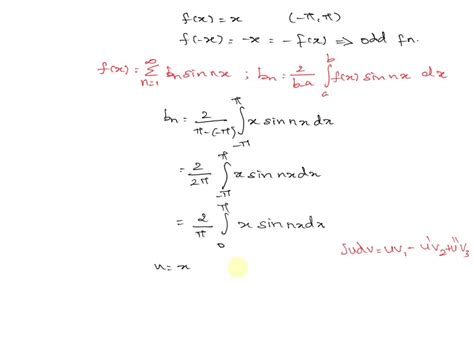 f(x) = x (-π, π)
f(-x) = -x = -f(x) ⇒ odd fn.
f(x) = ∑_{n=1}^{∞} bn sin nx ; bn = 2/(b-a) ∫_a^b f(x) sin nx dx
bn = 2/(π-(-π)) ∫_{-π}^{π} x sin nx dx
= 2/2π ∫_{-π}^{π} x sin nx dx
= 2/π ∫_0^π x sin nx dx
∫udv = uv₁ - u'v₂ + u''v₃
u = x